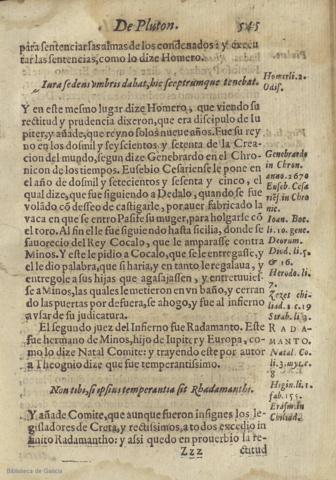 De Pluton. 545
para sentenciar las almas de los condenados: y execu
tar las sentencias, como lo dize Homero.
Iura sedens vmbris dabat, hic sceptrumque tenebat.
Y en este mesmo lugar dize Homero, que viendo su
rectitud y prudencia dixeron, que era discipulo de Iu
piter, y añade, que reyno solos nueue años. Fue su rey
no en los dos mil y seyscientos y setenta de la Crea-
cion del mundo, segun dize Genebrardo en el Chro-
nicon de los tiempos. Eusebio Cesariense le pone en
el año de dos mil y setecientos y sesenta y cinco, el
qual dize, que fue siguiendo a Dedalo, quando se fue
volado cõ desseo de castigarle, por auer fabricado la
vaca en que se entro Pasife su muger, para holgarse cõ
el toro. Al fin el le fue siguiendo hasta sicilia, donde se
fauorecio del Rey Cocalo, que le amparasse contra
Minos. Y este le pidio a Cocalo, que se le entregasse, y
el le dio palabra, que si haria, y en tanto le regalaua, y
entregole a sus hijas que agasajassen, y entretuuies-
se a Minos, las quales le metieron en vn baño, y cerran
do las puertas por defuera, se ahogo, y fue al infierno
a vsar de su judicatura.
El segundo juez del Infierno fue Radamanto. Este
fue hermano de Minos, hijo de Iupiter y Europa, co-
mo lo dize Natal Comite: y trayendo este por autor
a Theognio dize que fue temperantissimo.
Non tibi, si ipsius temperantia sit Rhadamanthi.
Y añade Comite, que aunque fueron insignes los le-
gisladores de Creta, y rectissimos, a todos excedio in
finito Radamantho: y assi quedo en prouerbio la re-
Zzz ctitud
Homer li. 2.
Odis.
Genebrardo
in Chron.
anno. 2670
Euseb. Cesa
riēs. in Chro
nic.
Ioan. Boc.
li. 10. gene.
Deorum.
Diod. li. 5.
& 16.
Herodo. li.
7.
Strab. li. 3.
RADA-
MANTO.
Natal. Co.
li. 3. myt. c.
8
Higin. li. 1.
fab. 155.
Erasm. in
Biblioteca de Galicia